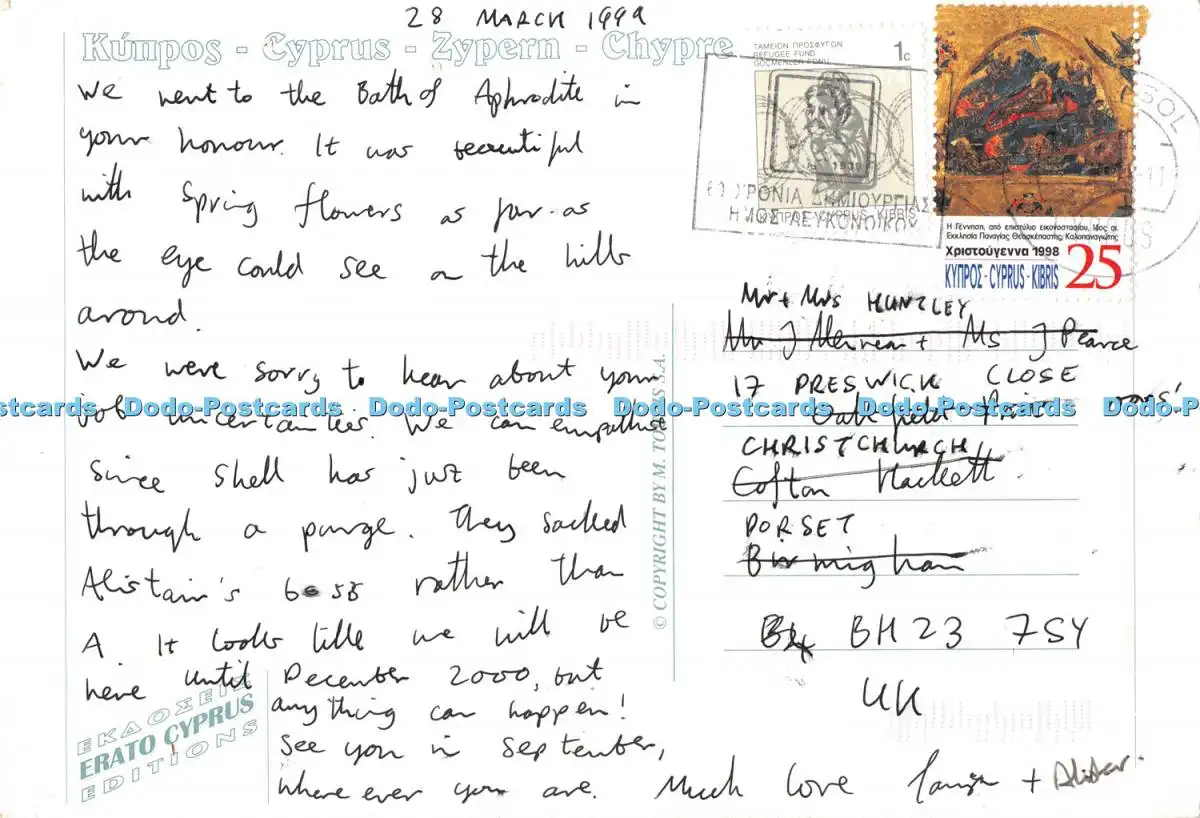 28 MARCH 1999
Κύπρος - Cyprus - Zypern - Chypre
We went to the Bath of Aphrodite in
your honour. It was beautiful
with Spring flowers as far as
the eye could see on the hills
around.
We were sorry to hear about your
job uncertainties. We can empathise
since Shell has just been
through a purge. They sacked
Alistair's boss rather than
A. It looks like we will be
here until December 2000, but
anything can happen!
See you in September,
where ever you are. Much love + Alistair.
ΕΚΔΟΣΕΙΣ
ERATO CYPRUS
EDITIONS
© COPYRIGHT BY M. TOUMAS S.A.
ΤΑΜΕΙΟΝ ΠΡΟΣΦΥΓΩΝ
REFUGEE FUND
GÖÇMENLER FONU
1c
1990
ΚΥΠΡΟΣ - CYPRUS - KIBRIS
ΧΡΟΝΙΑ ΔΗΜΙΟΥΡΓΙΑΣ
ΔΗΜΟΣ ΛΕΥΚΟΝΟΙΚΟΥ
Η Γέννηση, από επιστύλιο εικονοστασίου, 14ος αι.
Εκκλησία Παναγίας Θεοσκέπαστης, Καλοπαναγιώτης
Χριστούγεννα 1998
ΚΥΠΡΟΣ - CYPRUS - KIBRIS
25
Mr + Mrs HUNZLEY
Mr J + Ms J Pearce
17 PRESWICK CLOSE
CHRISTCHURCH
Cofton Hackett
DORSET
Birmingham
BH23 7SY
UK
Dodo-Postcards Dodo-Postcards Dodo-Postcards Dodo-Postcards